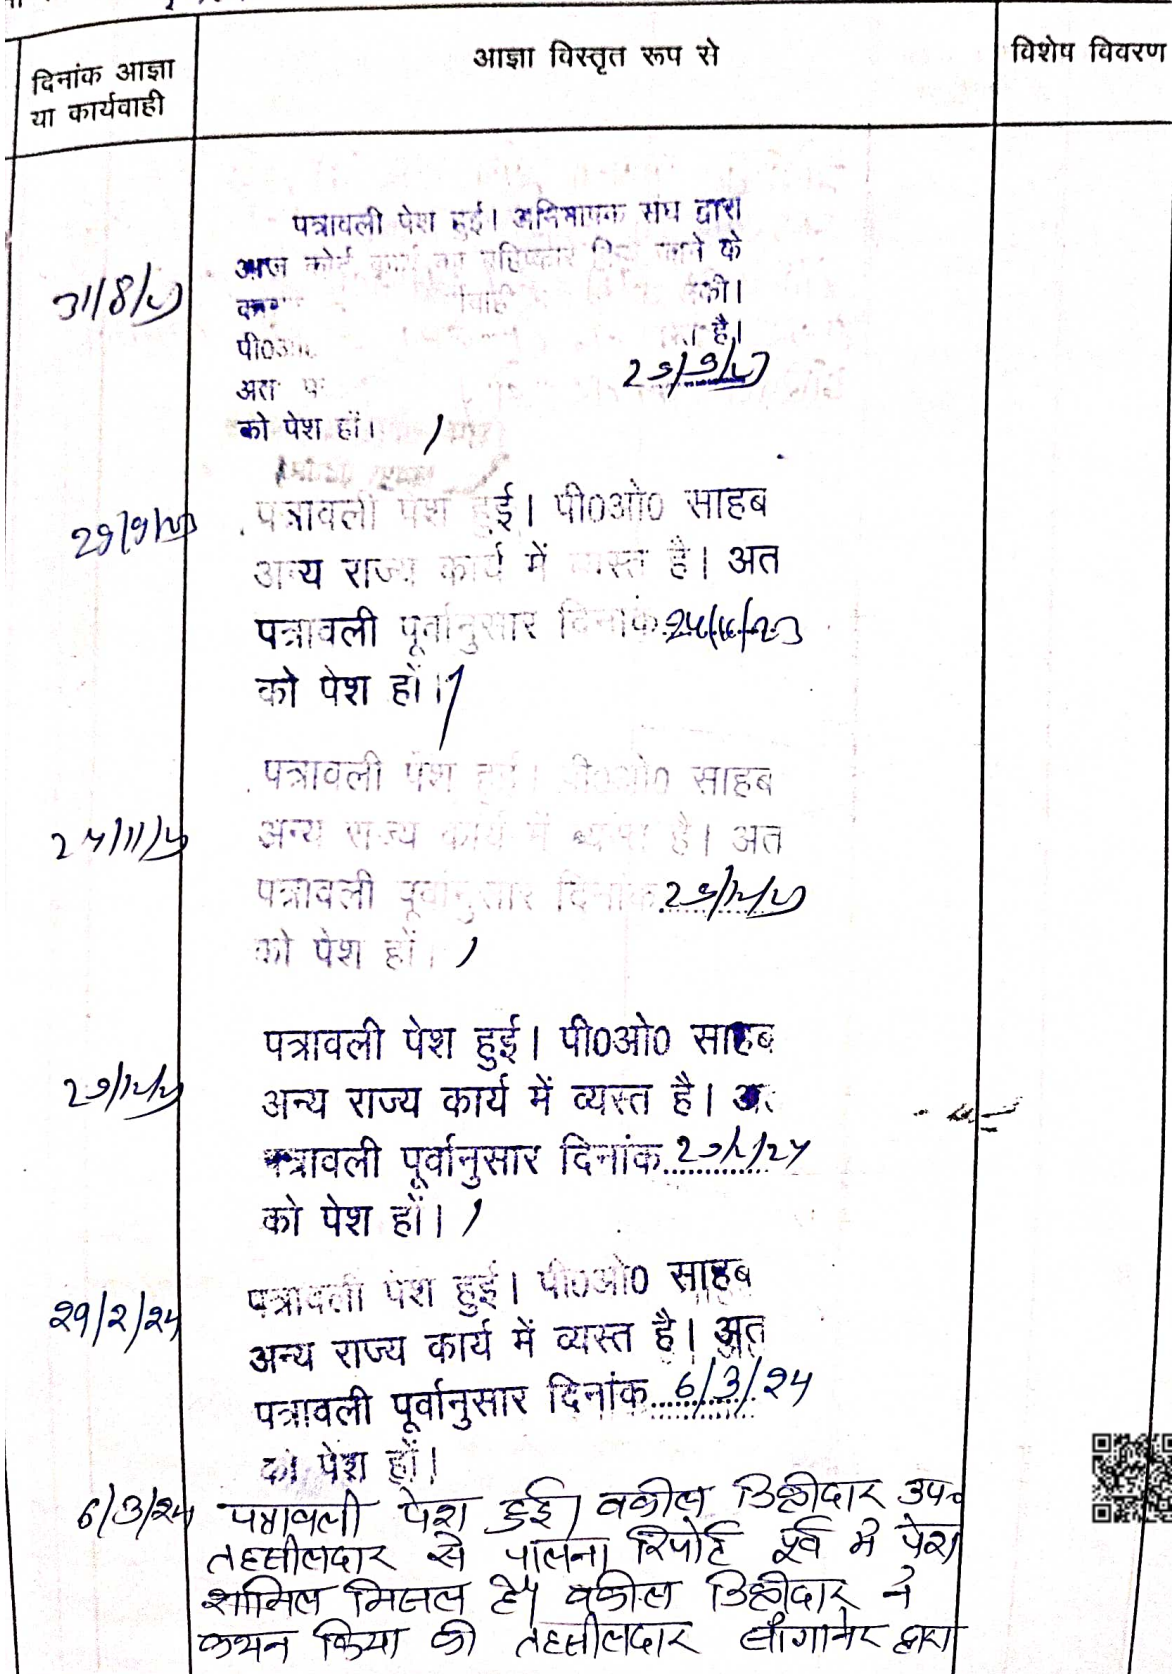 दिनांक आज्ञा
या कार्यवाही
आज्ञा विस्तृत रूप से
विशेष विवरण
31/8/23
पत्रावली पेश हुई। अभिभाषक संघ द्वारा
आज कोई के
की।
पी0ओ0 है।
अत 29/9/23
को पेश हों।
29/9/23
पत्रावली पेश हुई। पी0ओ0 साहब
अन्य राज्य कार्य में व्यस्त है। अत
पत्रावली पूर्वानुसार दिनांक 24/11/23
को पेश हों।
24/11/23
पत्रावली पेश हुई। पी0ओ0 साहब
अन्य राज्य कार्य में व्यस्त है। अत
पत्रावली पूर्वानुसार दिनांक
को पेश हों।
पत्रावली पेश हुई। पी0ओ0 साहब
अन्य राज्य कार्य में व्यस्त है।
पत्रावली पूर्वानुसार दिनांक
को पेश हों।
29/2/24
पत्रावली पेश हुई। पी0ओ0 साहब
अन्य राज्य कार्य में व्यस्त है। अत
पत्रावली पूर्वानुसार दिनांक 6/3/24
को पेश हों।
6/3/24
पत्रावली पेश हुई। वकील डिक्रीदार उप0
तहसीलदार से पालना रिपोर्ट पूर्व मे पेश
शामिल मिसल है। वकील डिक्रीदार ने
कथन किया की तहसीलदार सांगानेर द्वारा